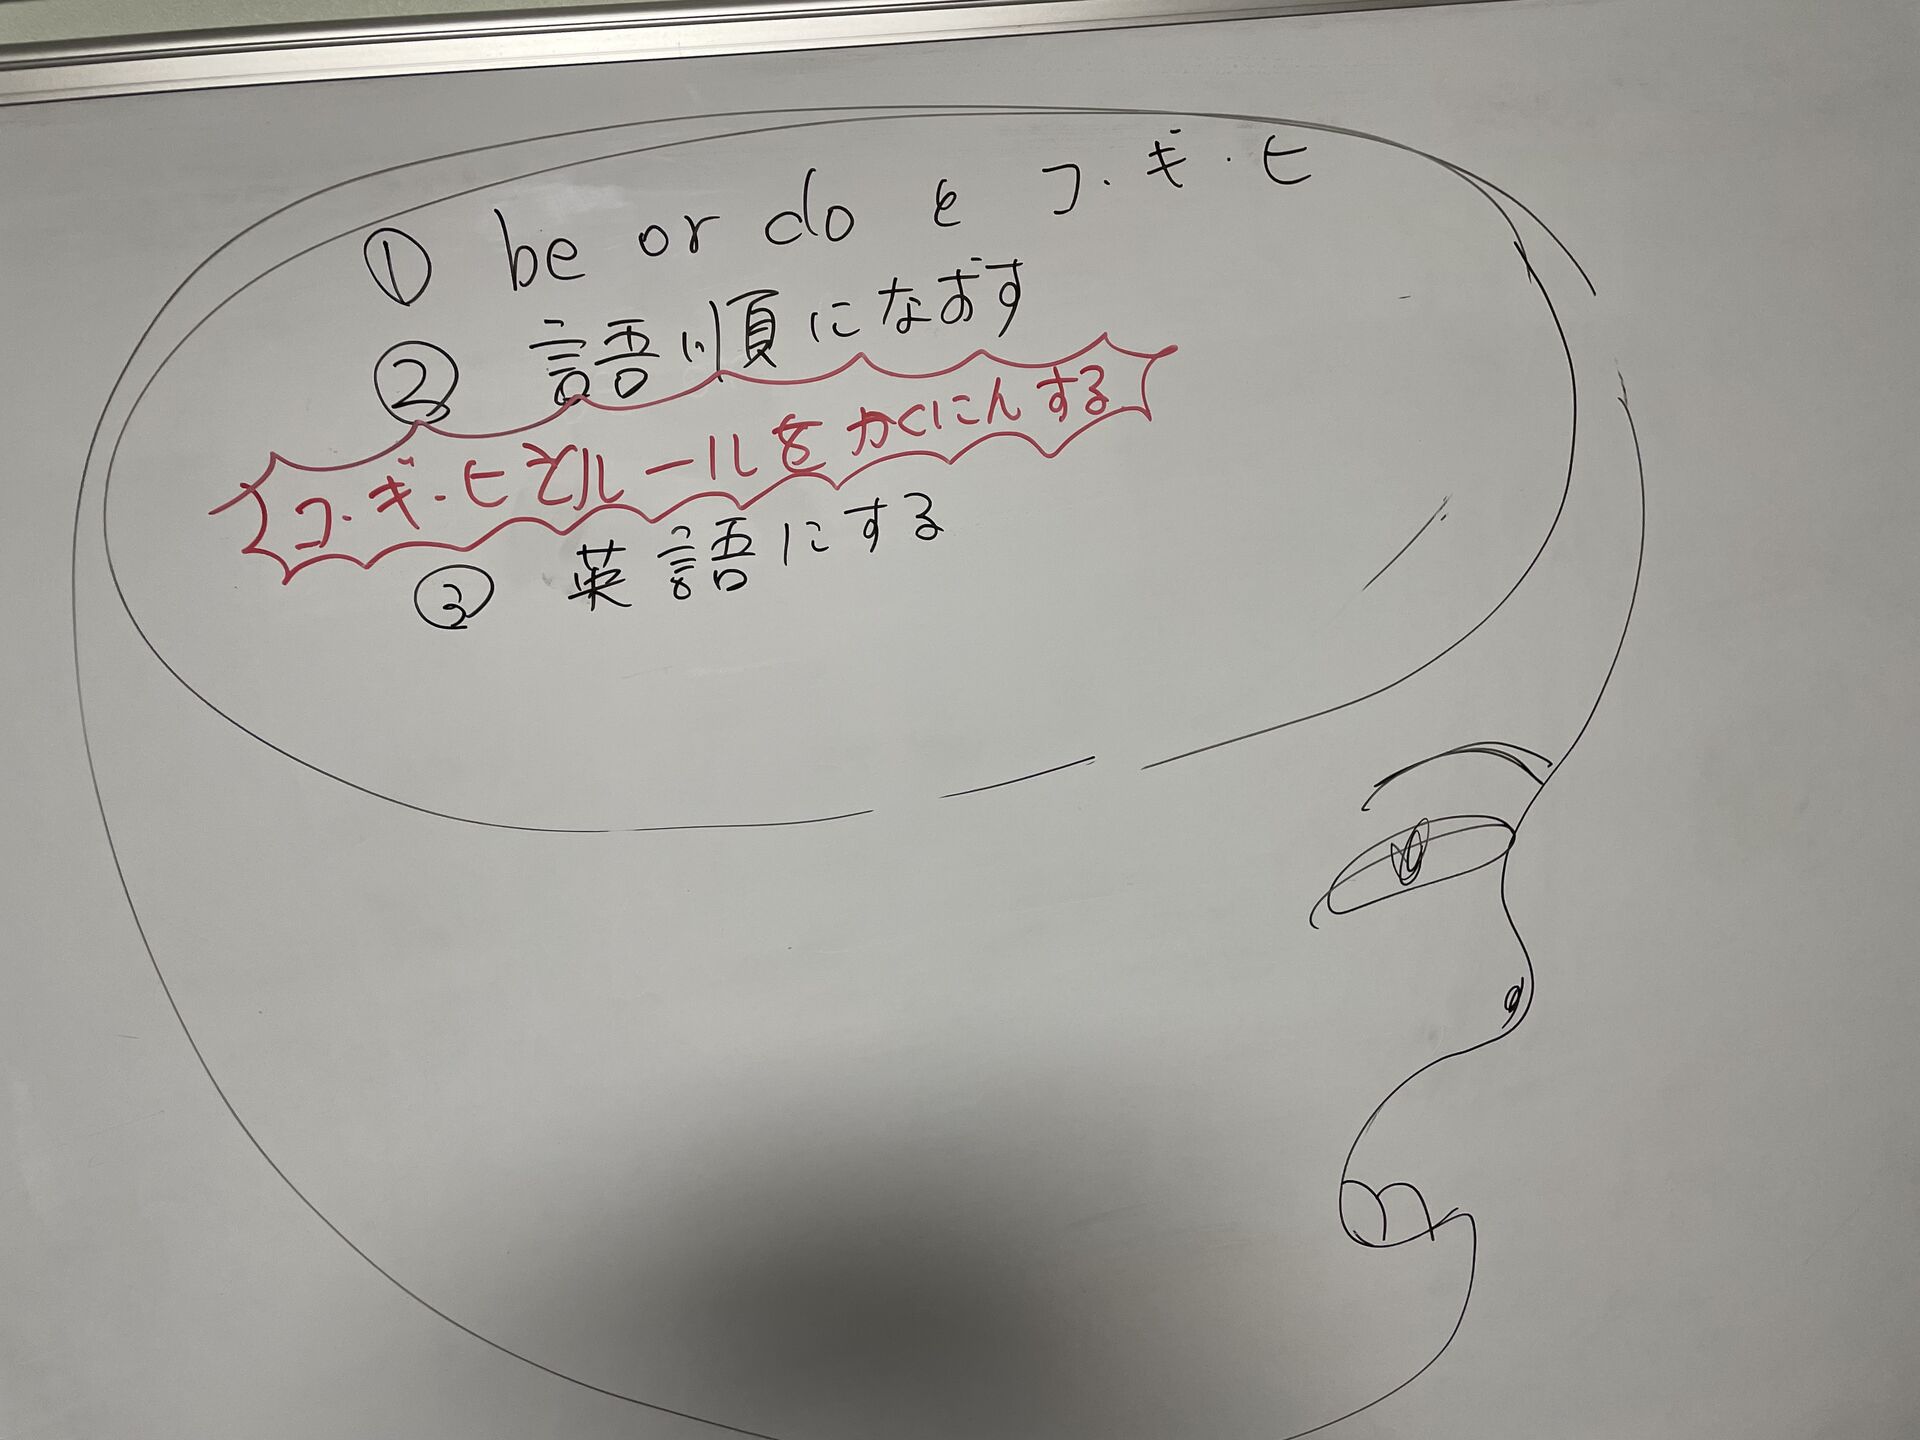 ① be or do と コ・ギ・ヒ
② 語順になおす
コ・ギ・ヒとルールをかくにんする
③ 英語にする